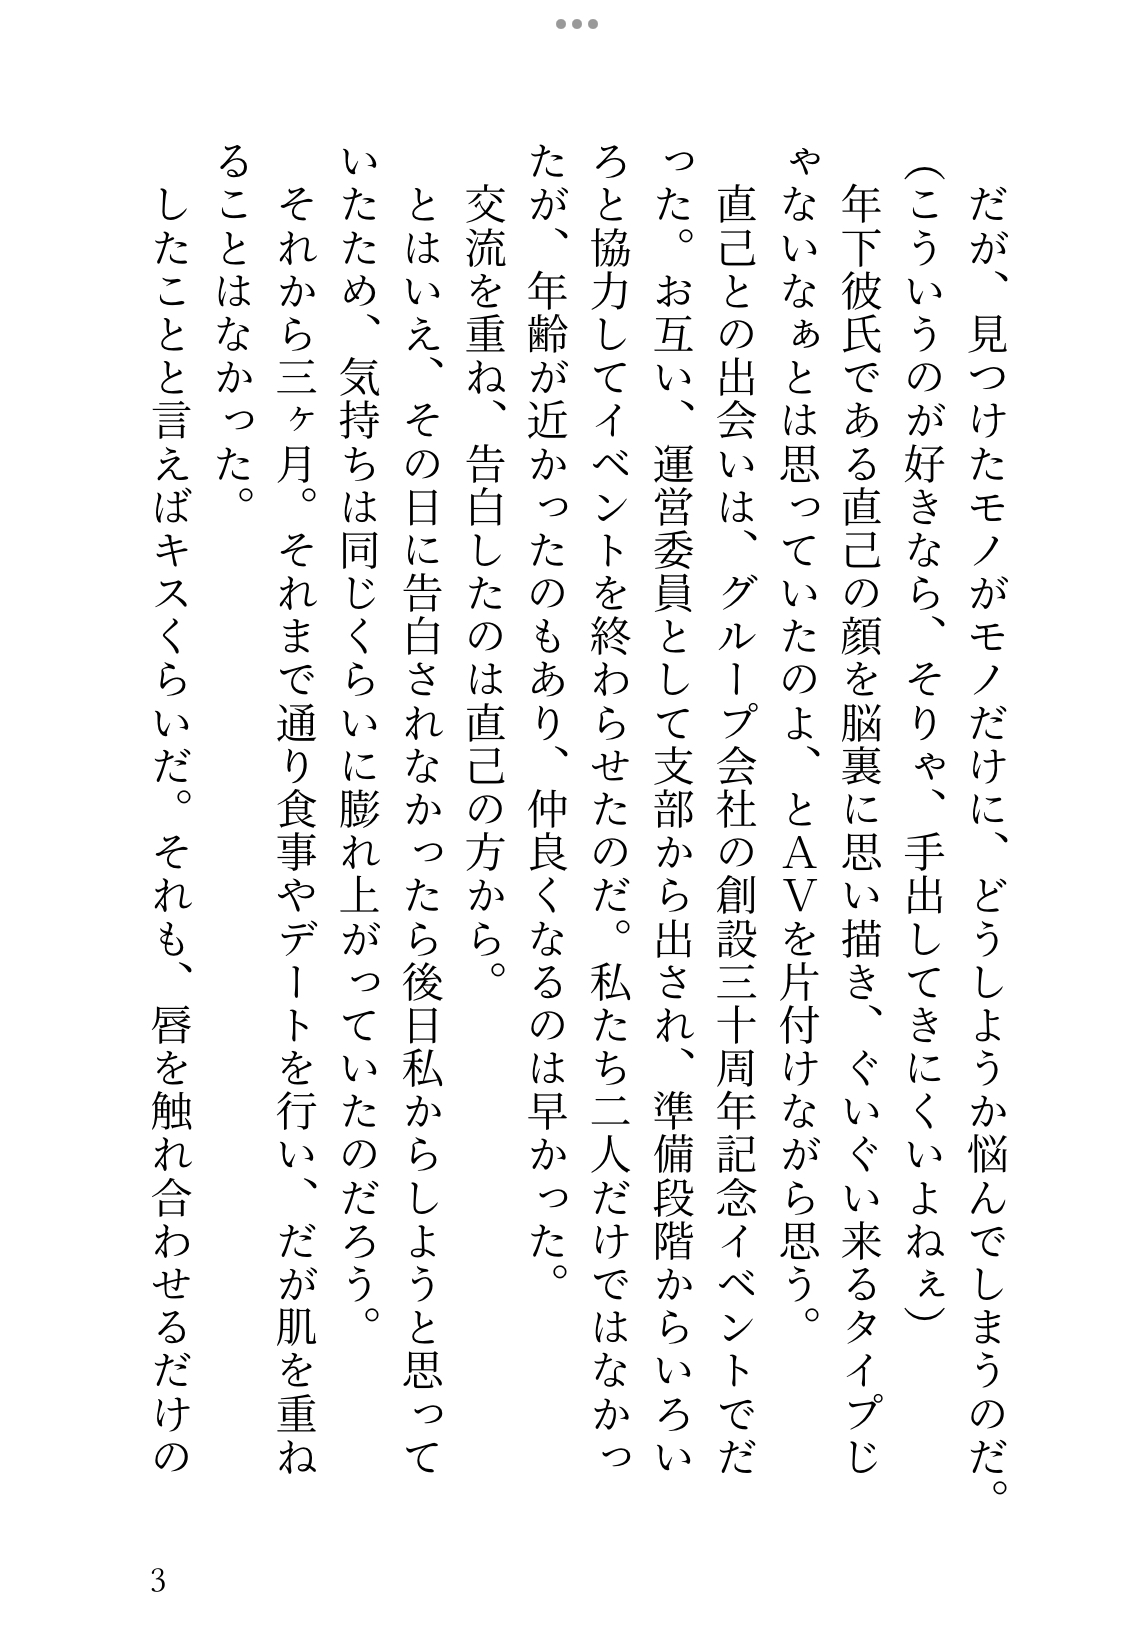 だが、見つけたモノがモノだけに、どうしようか悩んでしまうのだ。
（こういうのが好きなら、そりゃ、手出してきにくいよねぇ）
年下彼氏である直己の顔を脳裏に思い描き、ぐいぐい来るタイプじ
ゃないなぁとは思っていたのよ、とＡＶを片付けながら思う。
直己との出会いは、グループ会社の創設三十周年記念イベントでだ
った。お互い、運営委員として支部から出され、準備段階からいろい
ろと協力してイベントを終わらせたのだ。私たち二人だけではなかっ
たが、年齢が近かったのもあり、仲良くなるのは早かった。
交流を重ね、告白したのは直己の方から。
とはいえ、その日に告白されなかったら後日私からしようと思って
いたため、気持ちは同じくらいに膨れ上がっていたのだろう。
それから三ヶ月。それまで通り食事やデートを行い、だが肌を重ね
ることはなかった。
したことと言えばキスくらいだ。それも、唇を触れ合わせるだけの
3